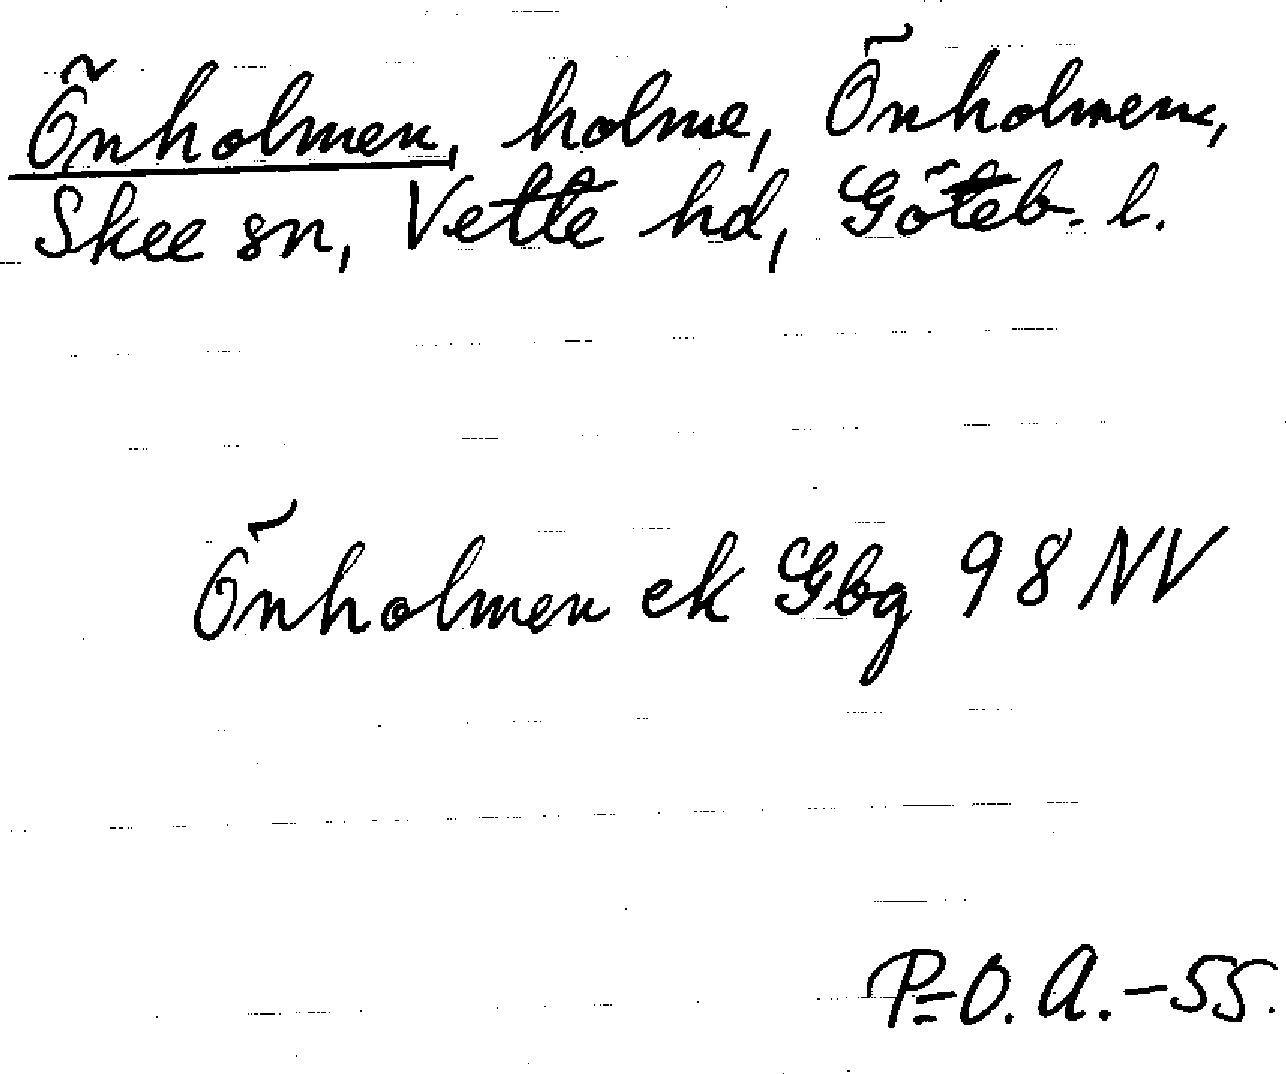 Önholmen, holme, Önholmen,
Skee sn, Vette hd, Göteb. l.
Önholmen ek Gbg 98 NV
P=O. A. -55.